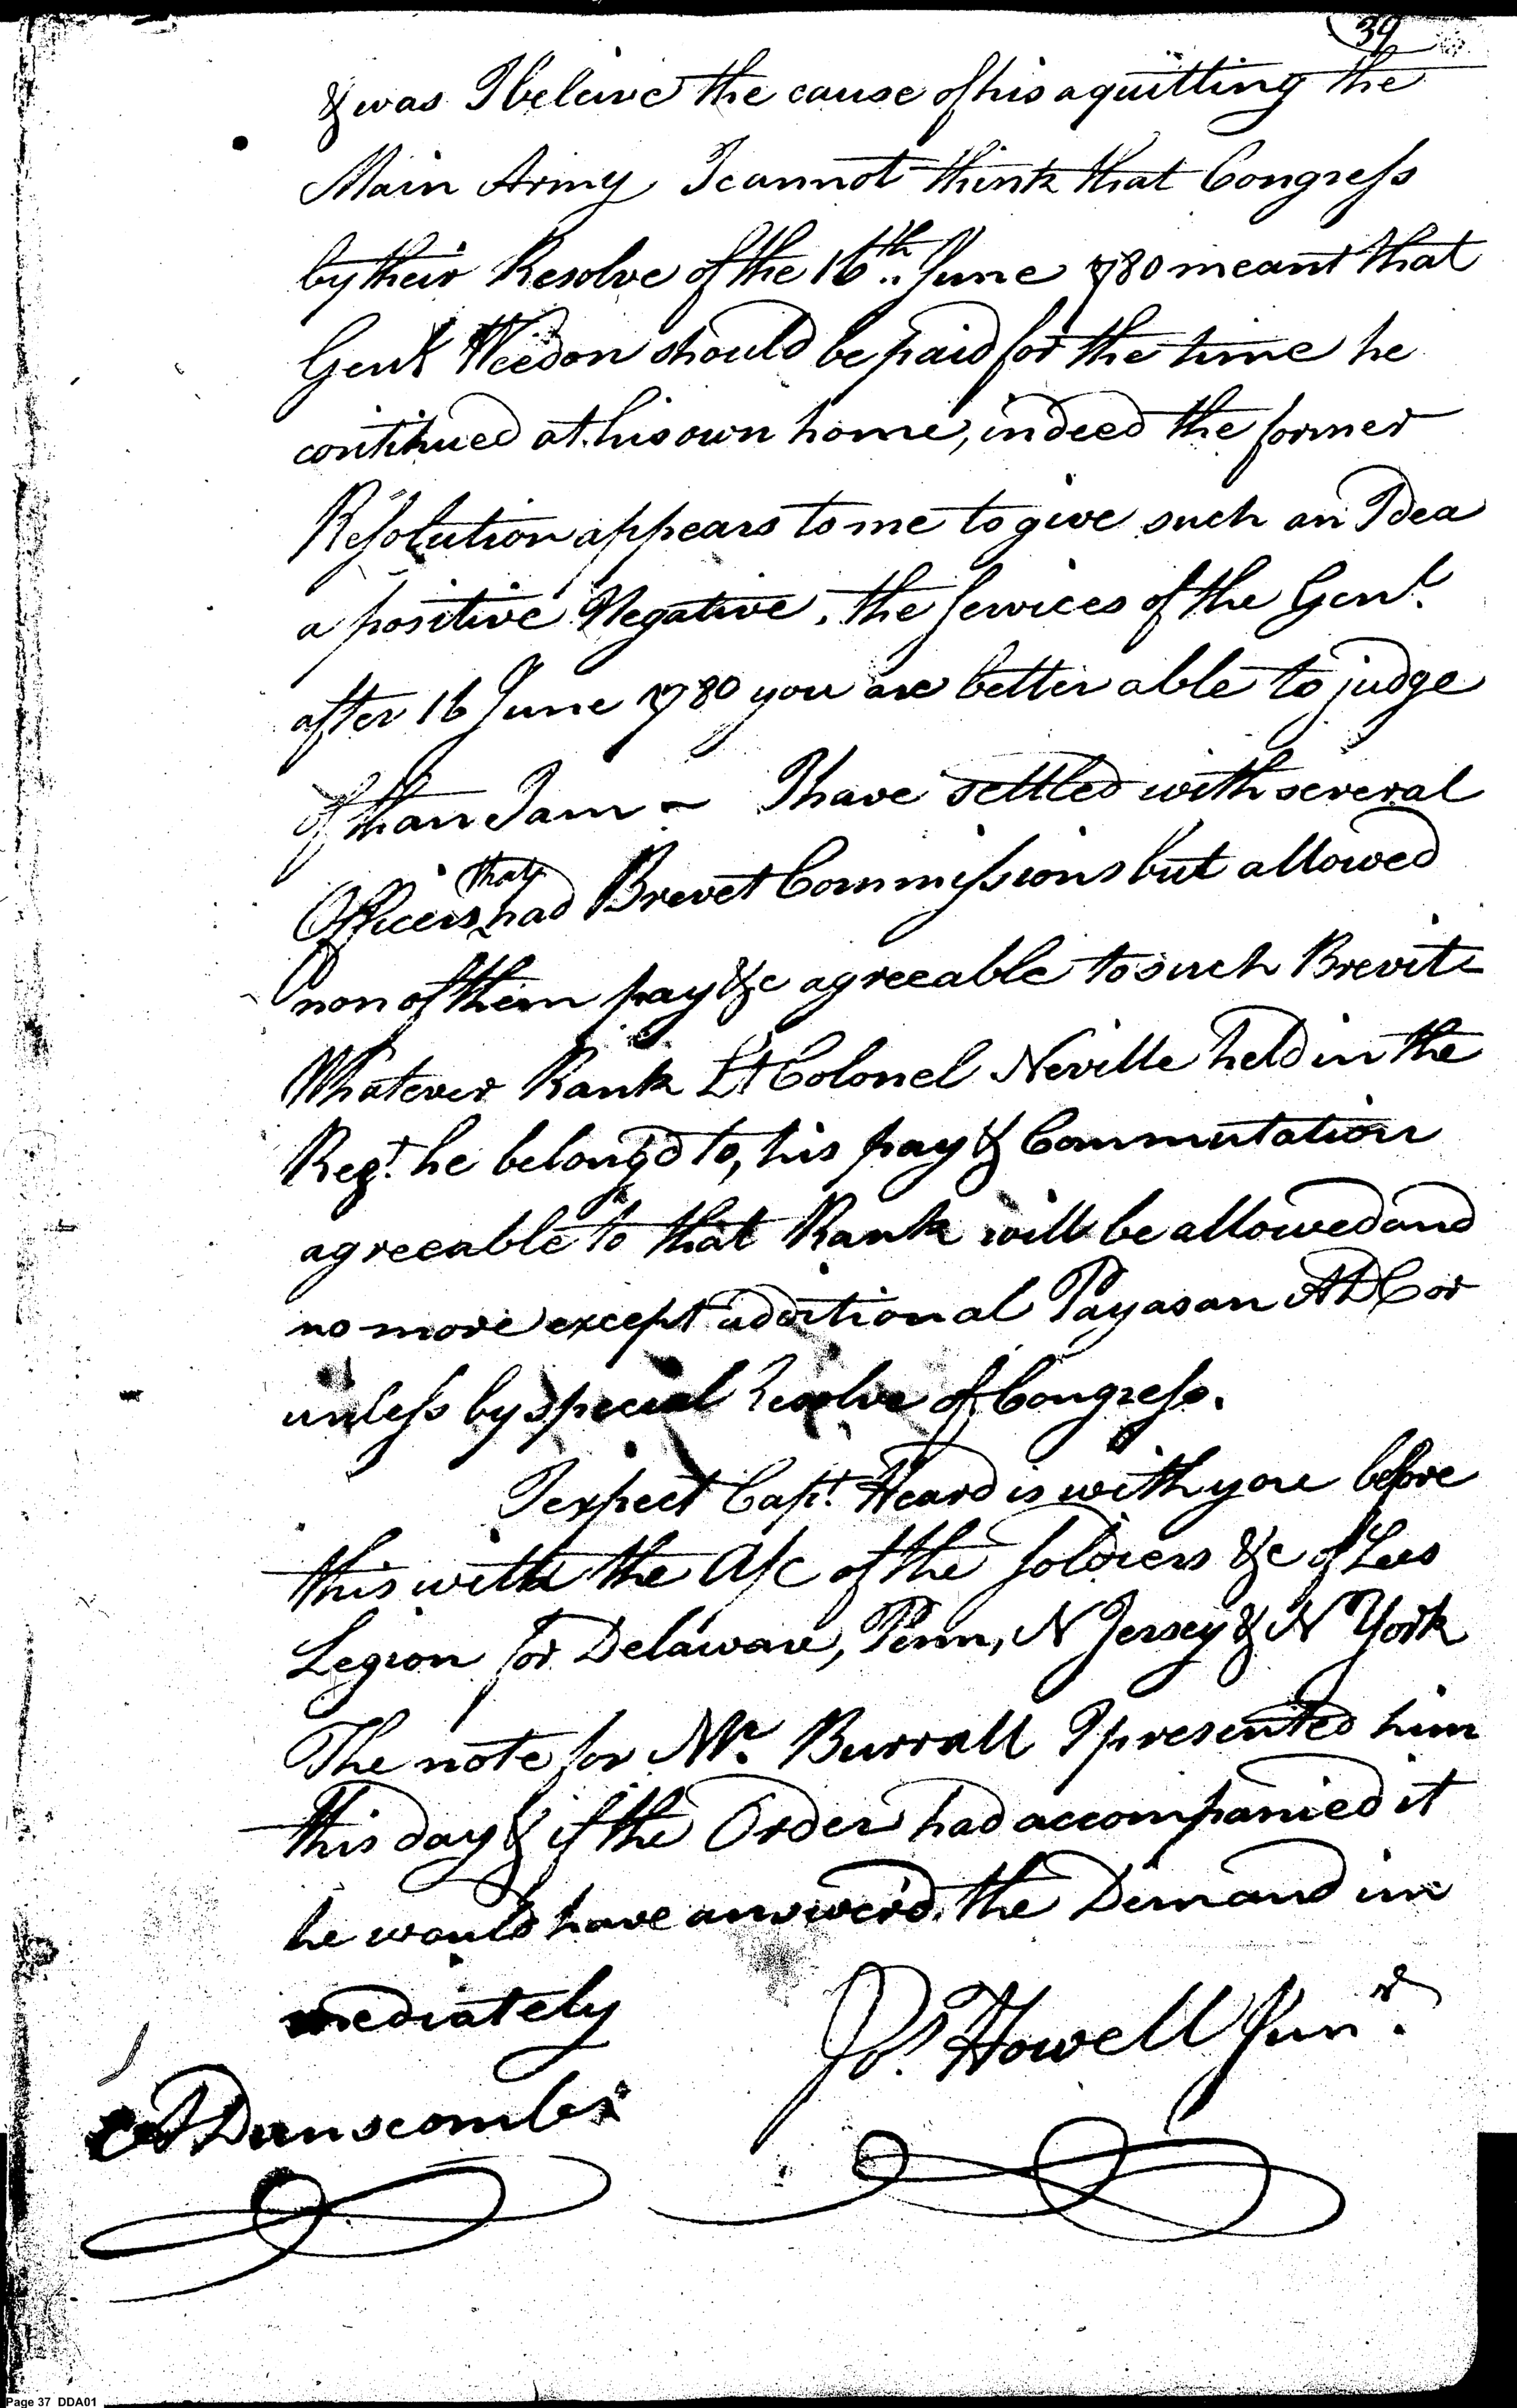 39
& was I beleive the cause of his aquitting the
Main Army I cannot think that Congress
by their Resolve of the 16th June 1780 meant that
Genl Weedon should be paid for the time he
continued at his own home, indeed the former
Resolution appears to me to give such an Idea
a positive Negative. the Services of the Genl
after 16 June 1780 you are better able to judge
of than I am - I have settled with several
Officers that had Brevet Commissions but allowed
non of them pay &c agreeable to such Brevits
Whatever Rank Lt Colonel Neville held in the
Regt. he belong'd to, his pay & Commutation
agreeable to that Rank will be allowed and
no more except additional Pay as an ADC or
unless by special Resolve of Congress.
I expect Capt. Heard is with you before
this with the A/c of the Soldiers &c of Lees
Legion for Delaware, Penn, N Jersey & N York
The note for Mr. Burrall I presented him
this day & if the Order had accompanied it
he would have answer'd the Demand im
mediately
Jos. Howell Junr.
A Dunscomb
Page 37 DDA01